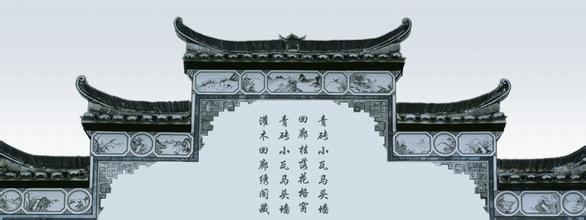 青砖小瓦马头墙
回廊挂落花格窗
青砖小瓦马头墙
灌木回廊绣阁藏